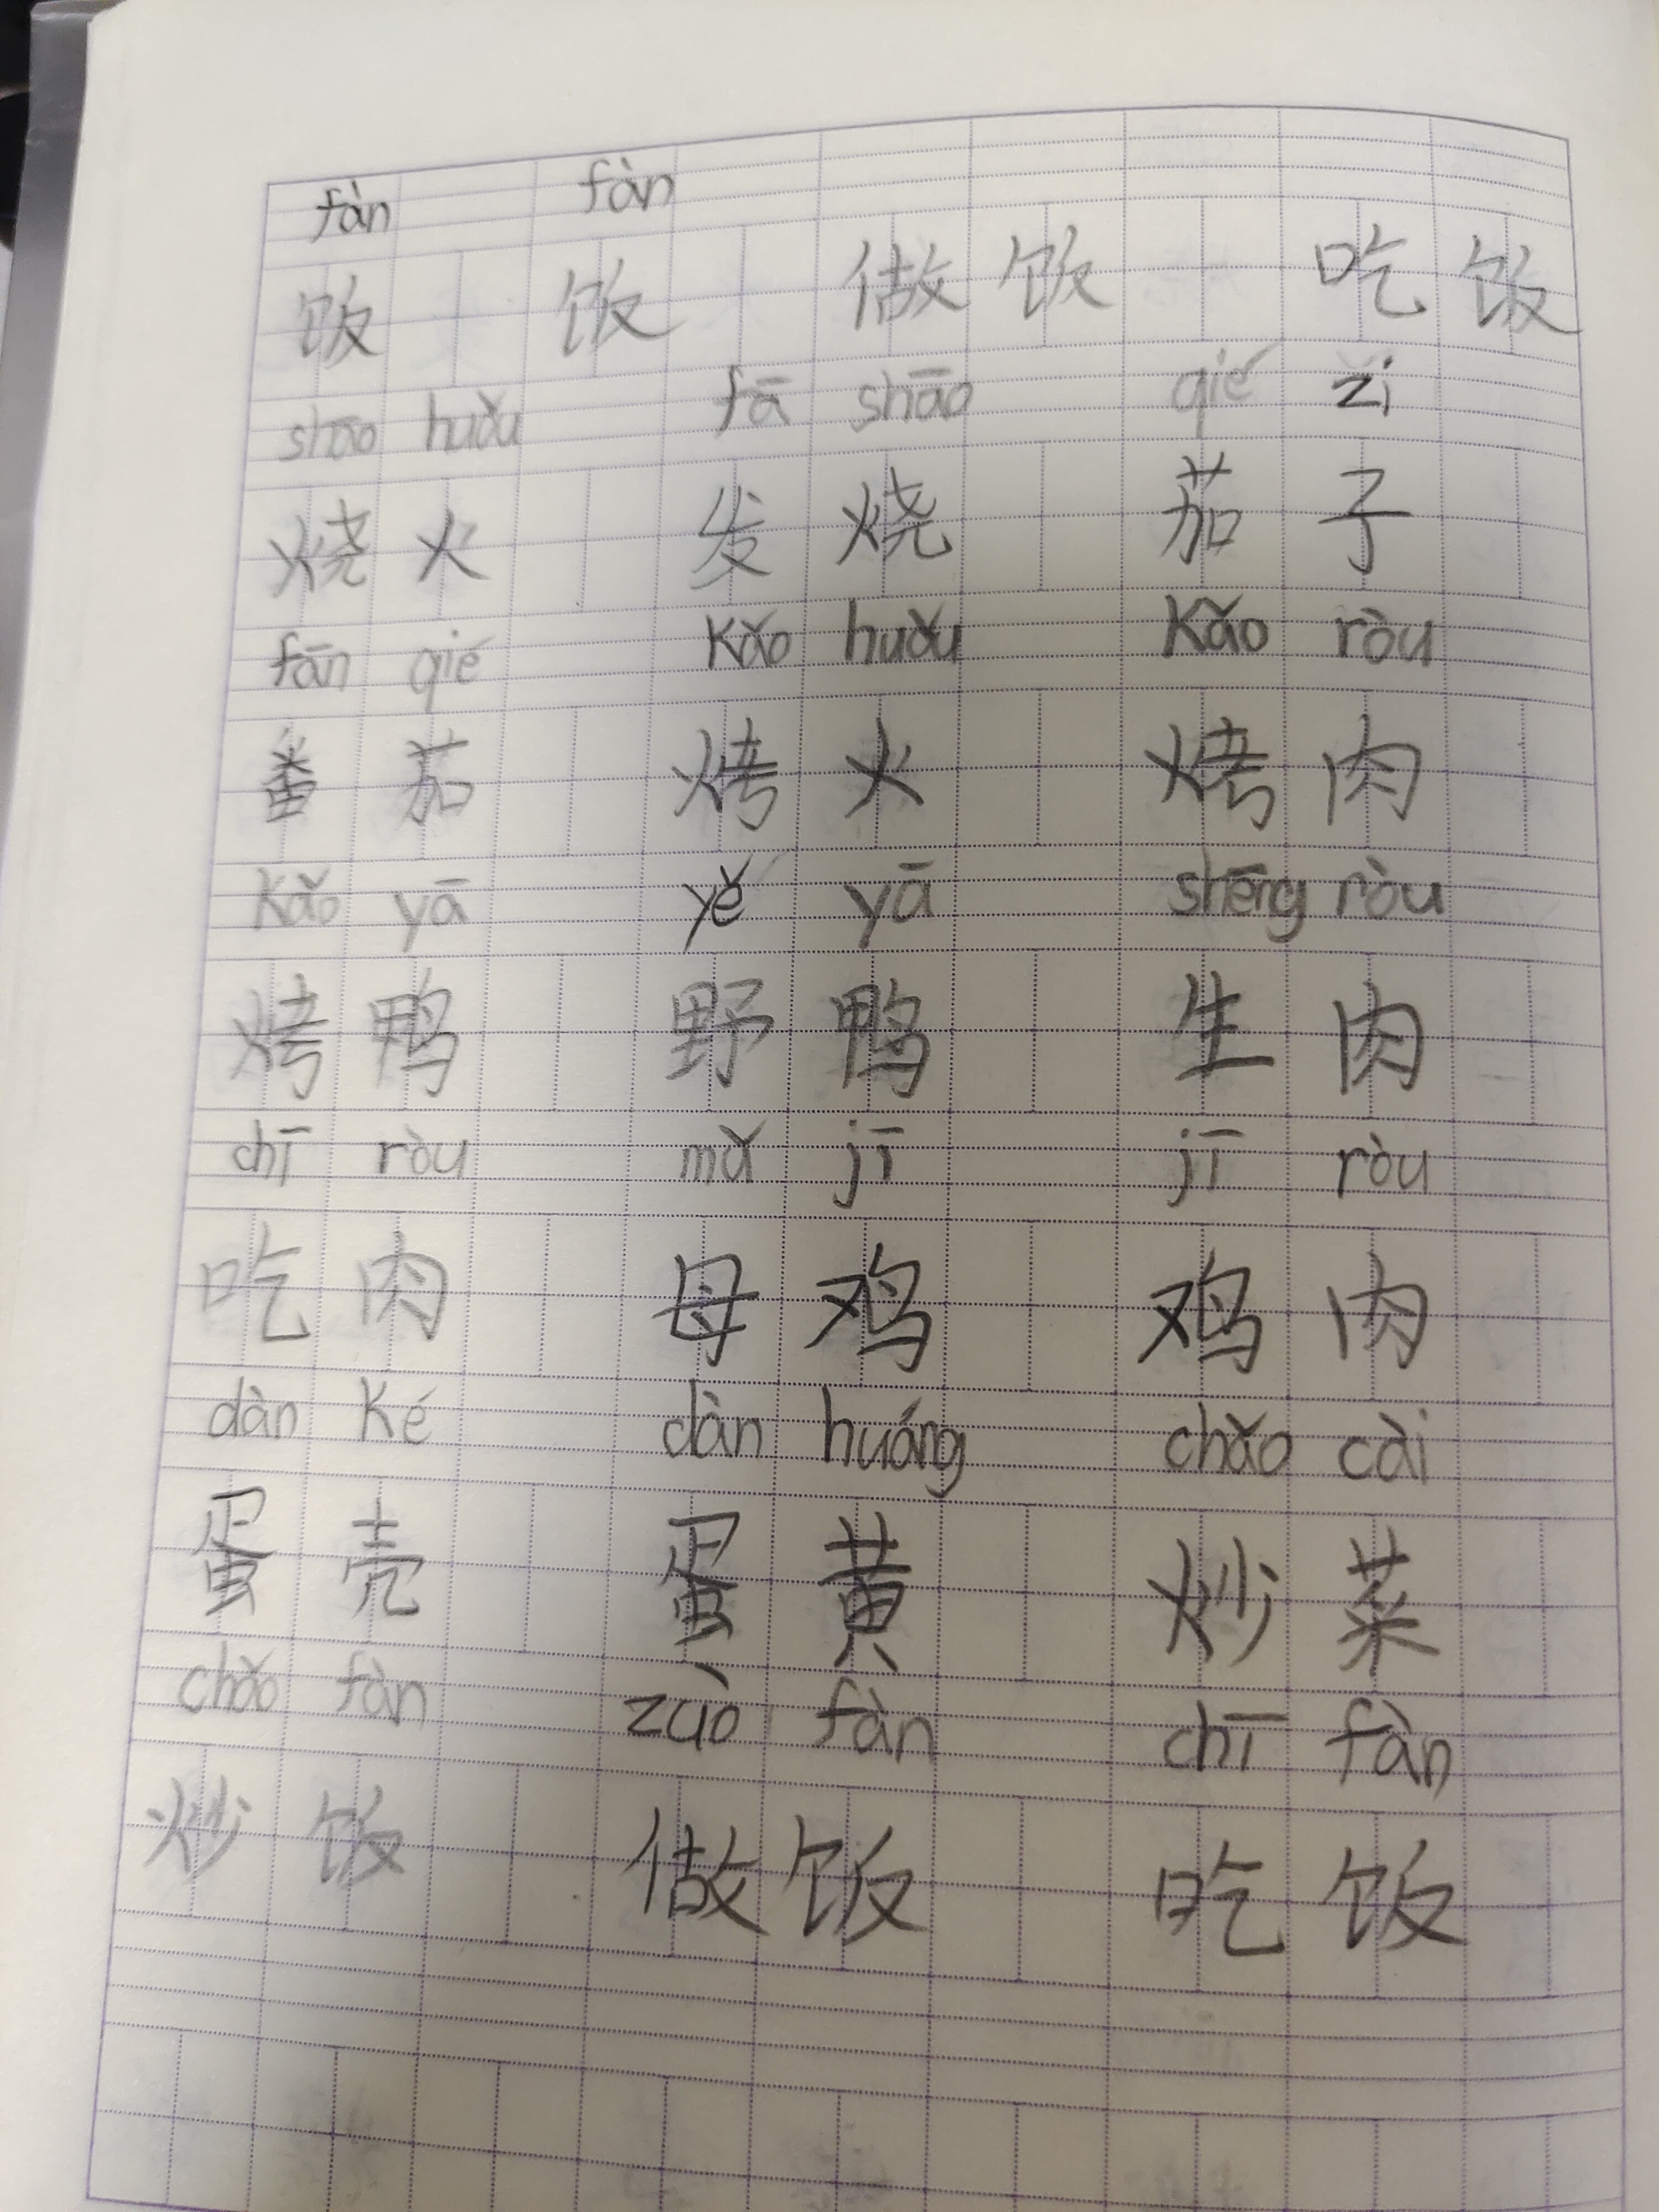 fàn fàn
饭 饭 做饭 吃饭
shāo huǒu fā shāo qié zi
烧火 发烧 茄子
fān qié Kǎo huǒu Kǎo ròu
番茄 烤火 烤肉
Kǎo yā yě yā shēng ròu
烤鸭 野鸭 生肉
chī ròu mǔ jī jī ròu
吃肉 母鸡 鸡肉
dàn Ké dàn huáng chǎo cài
蛋壳 蛋黄 炒菜
chǎo fàn zuò fàn chī fàn
炒饭 做饭 吃饭